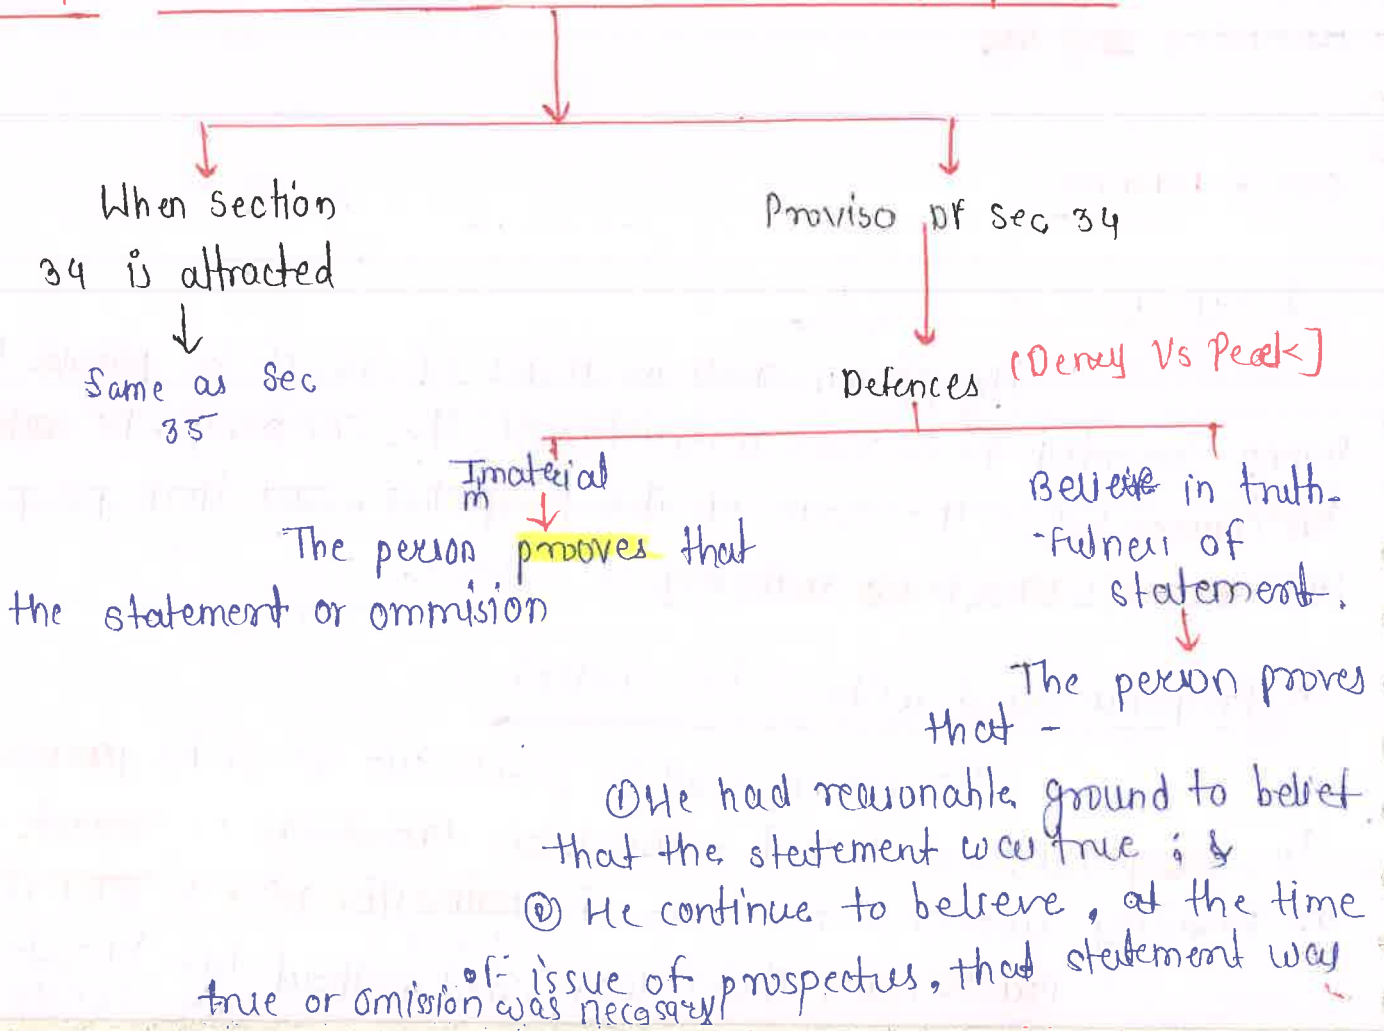 When section
34 is attracted
Same as Sec
35
Proviso of Sec 34
Defences (Derry Vs Peek]
Immaterial
The person prooves that
the statement or ommision
Believe in truth-
-fulness of
statement.
The person proves
that -
① He had reasonable ground to belief
that the statement was true ; &
② He continue to believe, at the time
of issue of prospectus, that statement was
true or omission was necessary